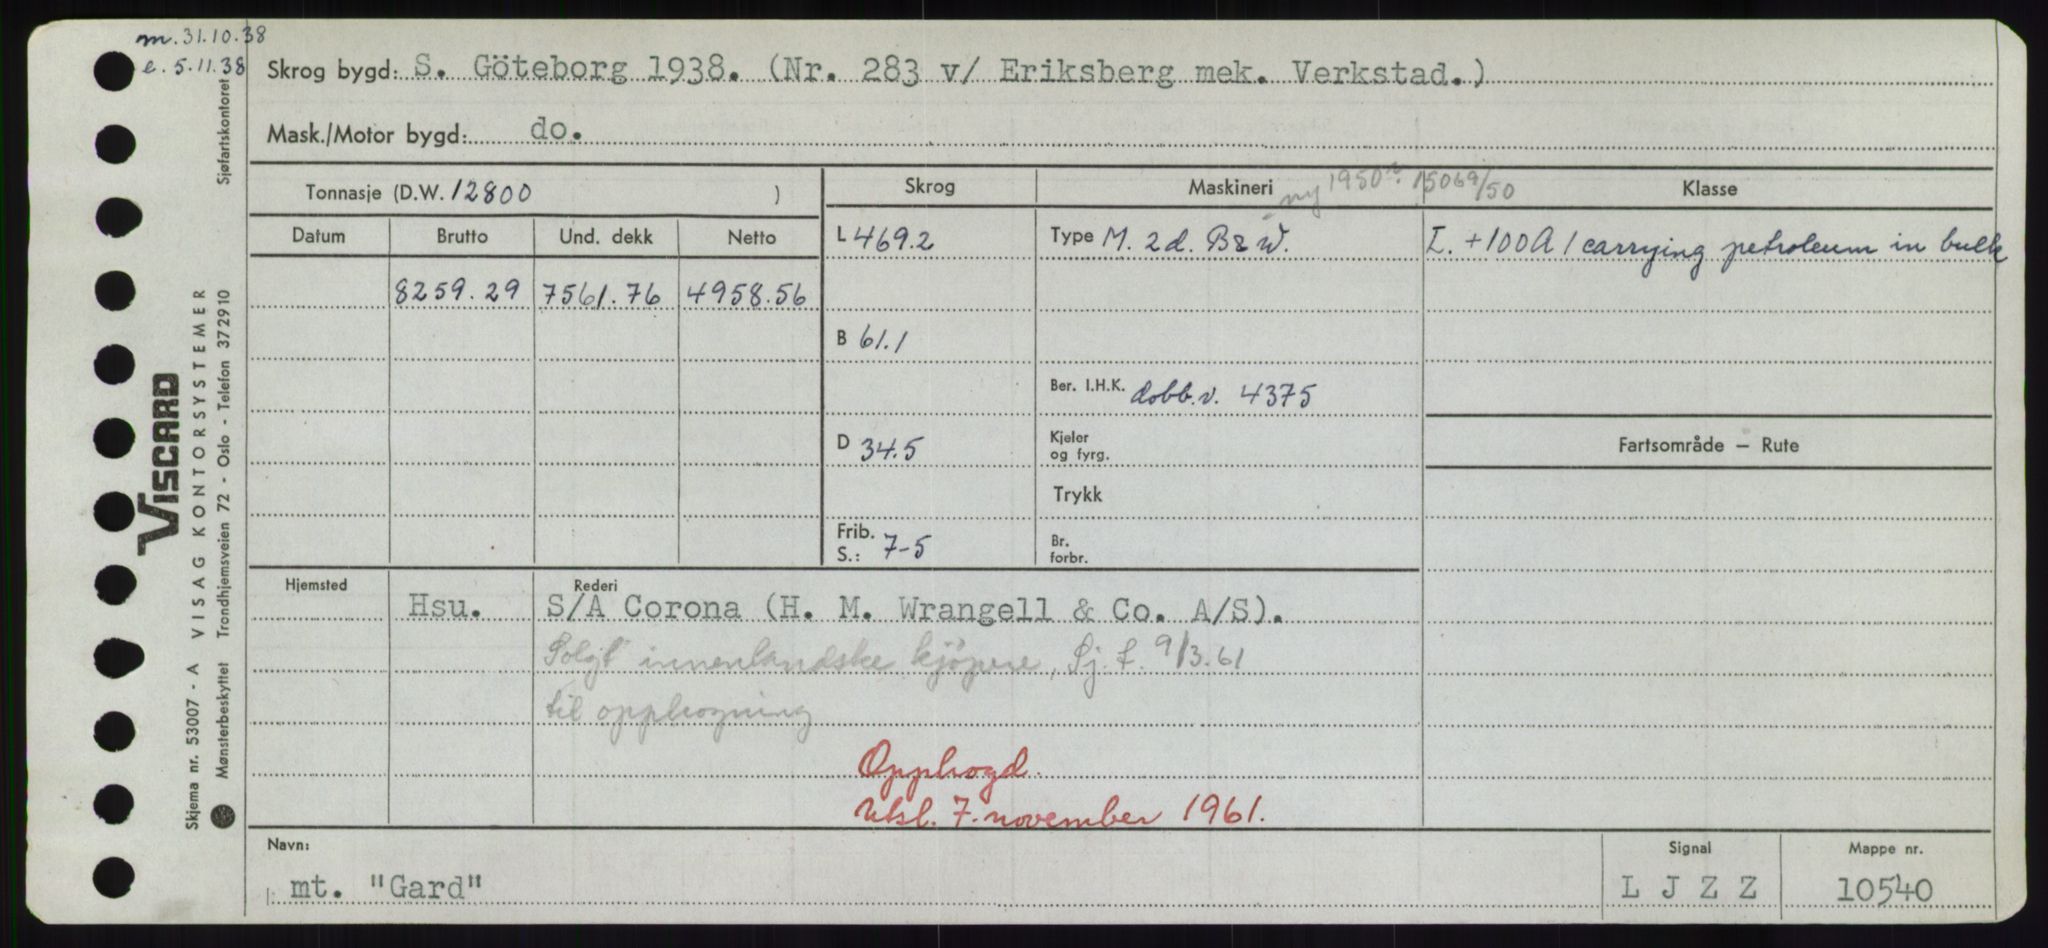 m. 31.10.38
e. 5.11.38
Skrog bygd: S. Göteborg 1938. (Nr. 283 v/ Eriksberg mek. Verkstad.)
Mask./Motor bygd: do.
Tonnasje (D.W. 12800 )
Skrog
Maskineri
ny 1950 15069/50
Klasse
Datum Brutto Und. dekk Netto
L 469.2
Type M. 2 d. B & W.
I. +100A1 carrying petroleum in bulk
8259.29 7561.76 4958.56
B 61.1
Ber. I.H.K. dobb.v. 4375
D 34.5
Kjeler og fyrg.
Fartsområde — Rute
Trykk
Frib. S.: 7-5
Br. forbr.
Hjemsted Rederi
Hsu. S/A Corona (H. M. Wrangell & Co. A/S).
Solgt innenlandske kjøpere, Sj. f. 9/3.61
til opphogning
Opphogd.
Utsl. 7. november 1961.
Navn:
mt. "Gard"
Signal
L J Z Z
Mappe nr.
10540
Skjema nr. 53007 - A VISAG KONTORSYSTEMER
Mønsterbeskyttet Trondhjemsveien 72 - Oslo - Telefon 372910
Sjøfartskontoret
VISCARD